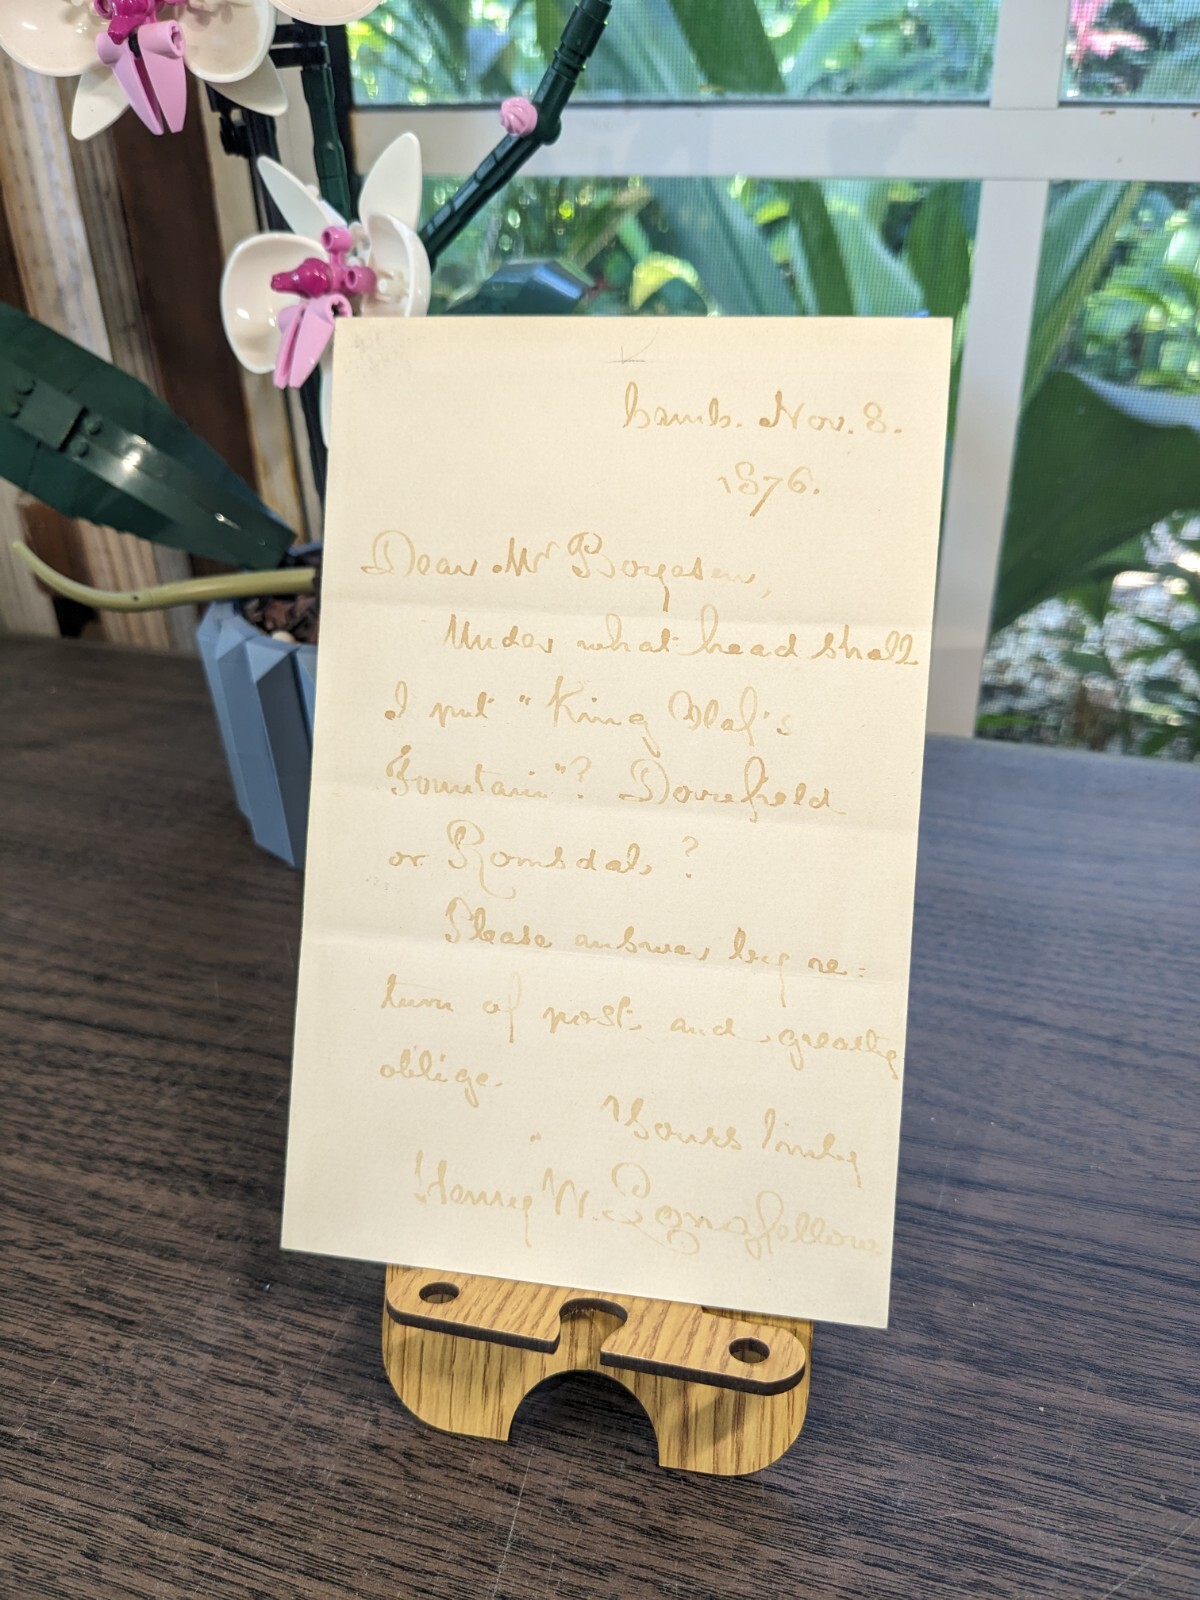 Camb. Nov. 8.
1876.
Dear Mr Boyesen,
Under what head shall
I put "King Olaf's
Fountain"? Dovrefield
or Romsdal?
Please answer by re=
turn of post, and greatly
oblige.
Yours truly
Henry W. Longfellow